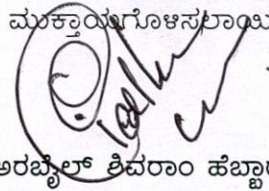 ಮುಕ್ತಾಯಗೊಳಿಸಲಾಯಿ
ಅರಬೈಲ್ ಶಿವರಾಂ ಹೆಬ್ಬಾ